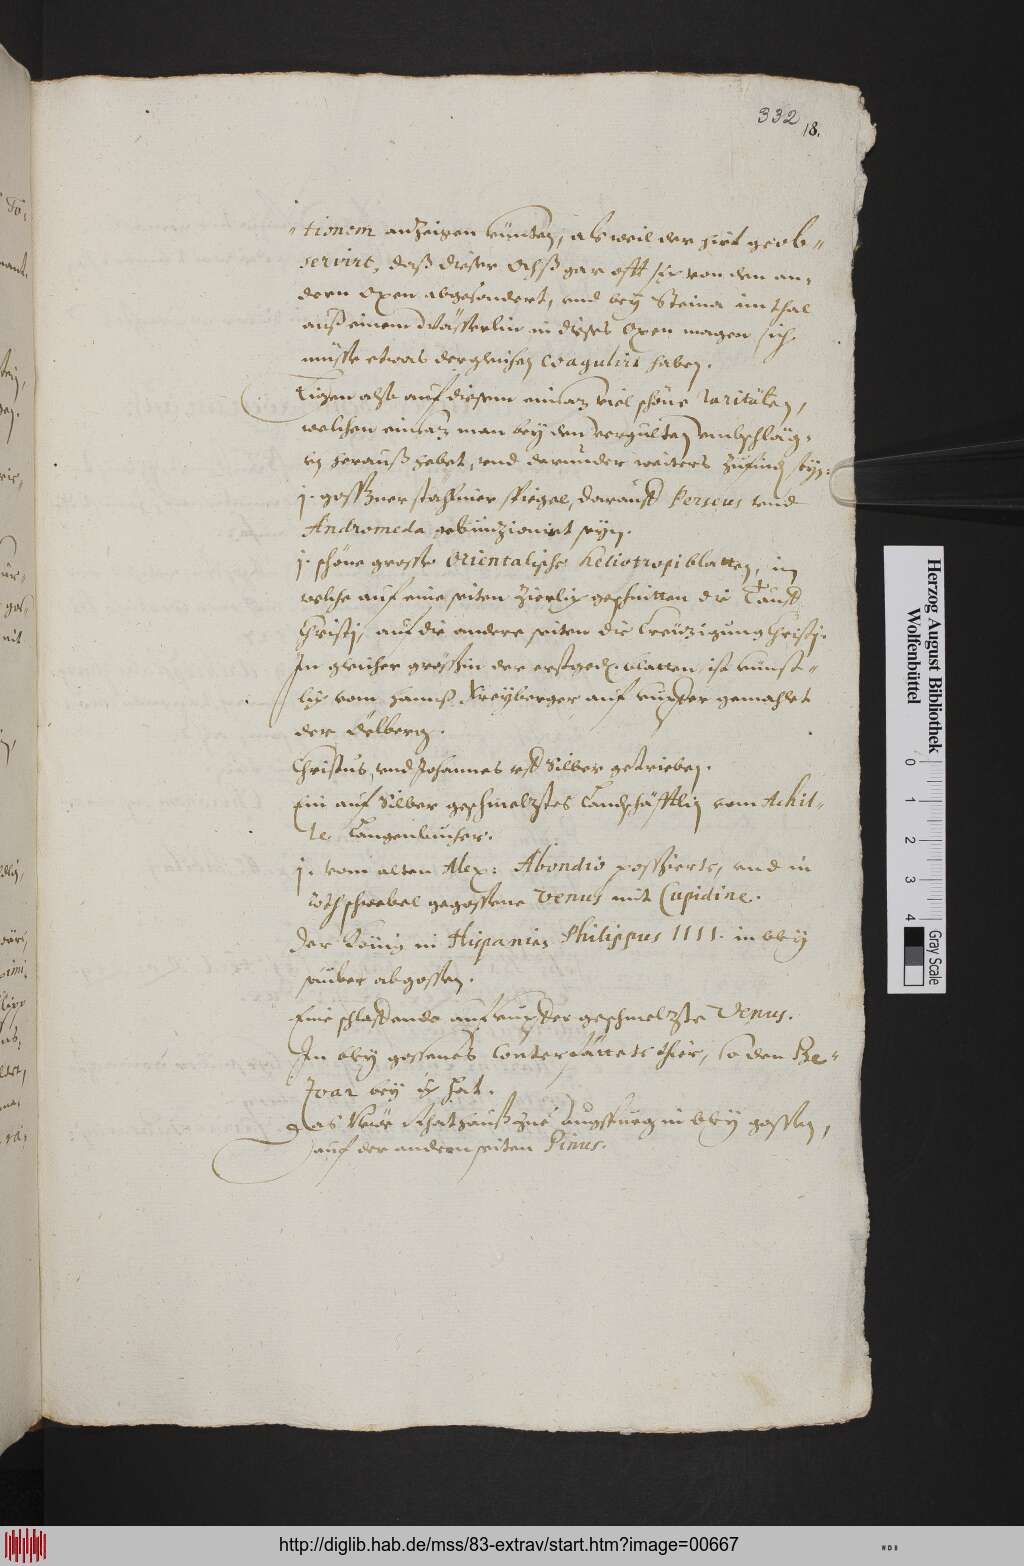 332 18.
tionem anzeigen künten, als weil der hirt geob-
servirt, daß dieser Ochß gar offt sich von den an-
dern Oxen abgesondert, und bey Steina im thal
auß einem Wässerlin in dieses Oxen magen sich
müsse etwas dergleichen coagulirt haben.
Ligen also auf diesem einsaz viel schöne raritäten,
welchen einsaz man bey den vergulten
herauß hebet, und darunder weiters zufinden seyn:
j. gossner stahliner spiegel, darauff Perseus und
Andromeda gebunzioniert seyn.
j. schöne grosse Orientalische Heliotropi blatten, in
welche auf eine seiten zierlich geschnitten die Tauff
Christj, auf die andere seiten die Creützigung Christj.
In gleicher größin der erstged. blatten, ist künst-
lich vom Hannß Freyberger auf kupffer gemahlet
der Oelberg.
Christus, und Johannes auß Silber getrieben.
Ein auf Silber geschmelztes Landschäfftlin vom Achil-
le Langenbucher.
j. vom alten Alex: Abondio possierte, und in
roth schwebel gegossene Venus mit Cupidine.
Der König in Hispanien Philippus IIII. in bley
sauber abgossen.
Eine schlaffende auf kupffer geschmelzte Venus.
In bley gossenes Conterfättets thier, so den Be-
zoar bey sich hat.
Das Newe Rhathauß zue Augspurg in bley gossen,
auf der andern seiten Pinus.
Herzog August Bibliothek
Wolfenbüttel
0 1 2 3 4
Gray Scale
http://diglib.hab.de/mss/83-extrav/start.htm?image=00667